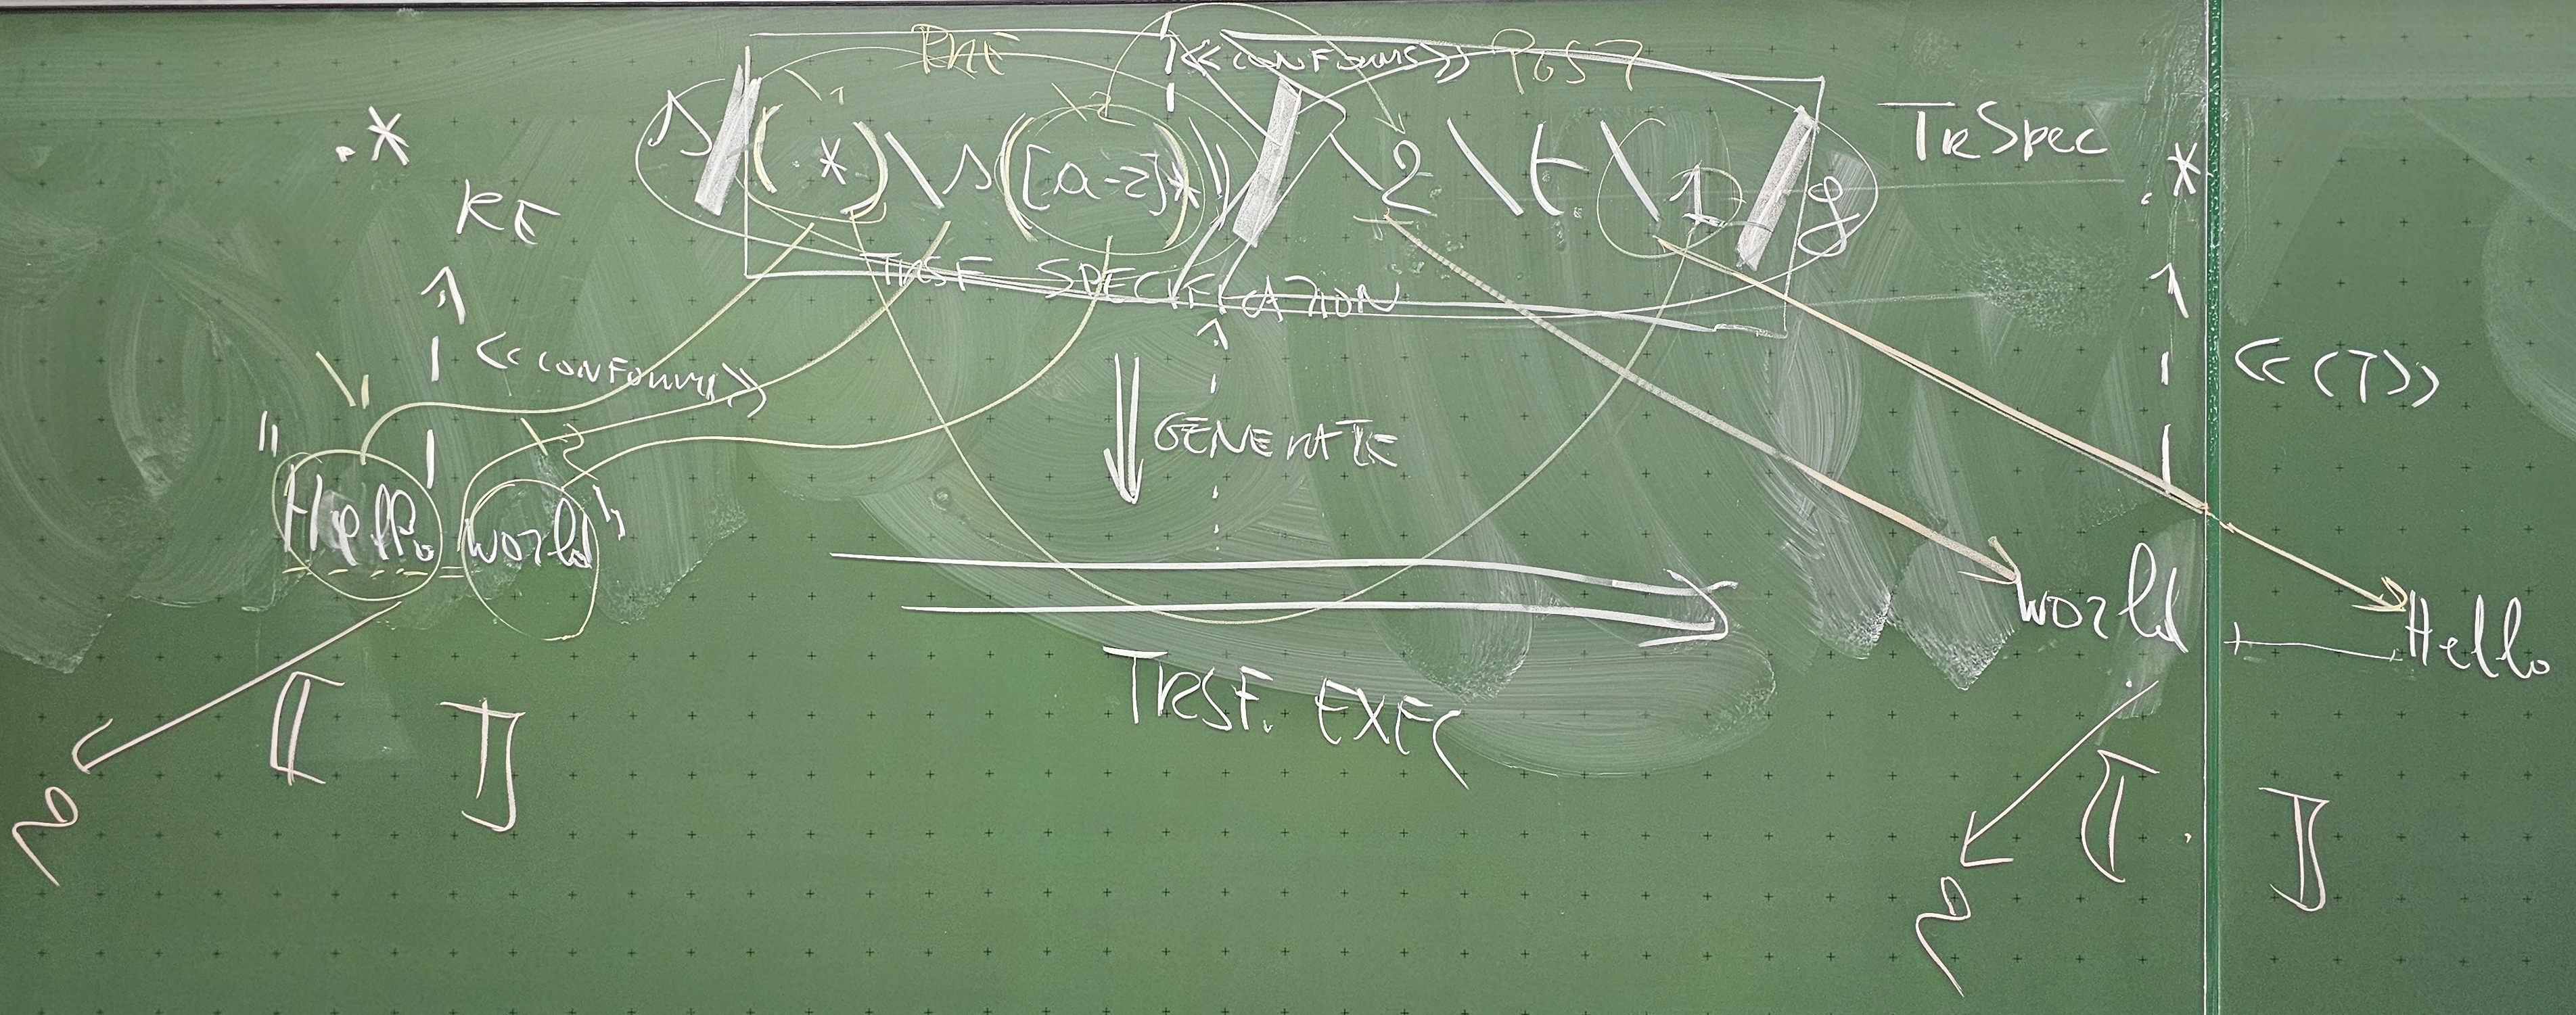 PRE <<CONFORMS>> POST
.* s/(.*)\s([a-z]*)/\2\t\1/g TRSpec .*
RE
TRSF SPECIFICATION
<<CONFORMS>> <<CT>>
GENERATE
"Hello world"
world Hello
TRSF. EXEC
⟦ ⟧
⟦ . ⟧